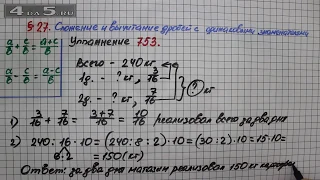 4APS.RU
§27. Сложение и вычитание дробей с одинаковыми знаменателями
a/b + c/b = a+c/b
a/b - c/b = a-c/b
Упражнение 753.
Всего - 240 кг
1д. - ? кг, 3/16
2д. - ? кг, 7/16
? кг
1) 3/16 + 7/16 = 3+7/16 = 10/16 реализовал всего за два дня
2) 240:16·10=(240:8:2)·10=(30:2)·10=15·10=
8·2
=150(кг)
Ответ: за два дня магазин реализовал 150 кг